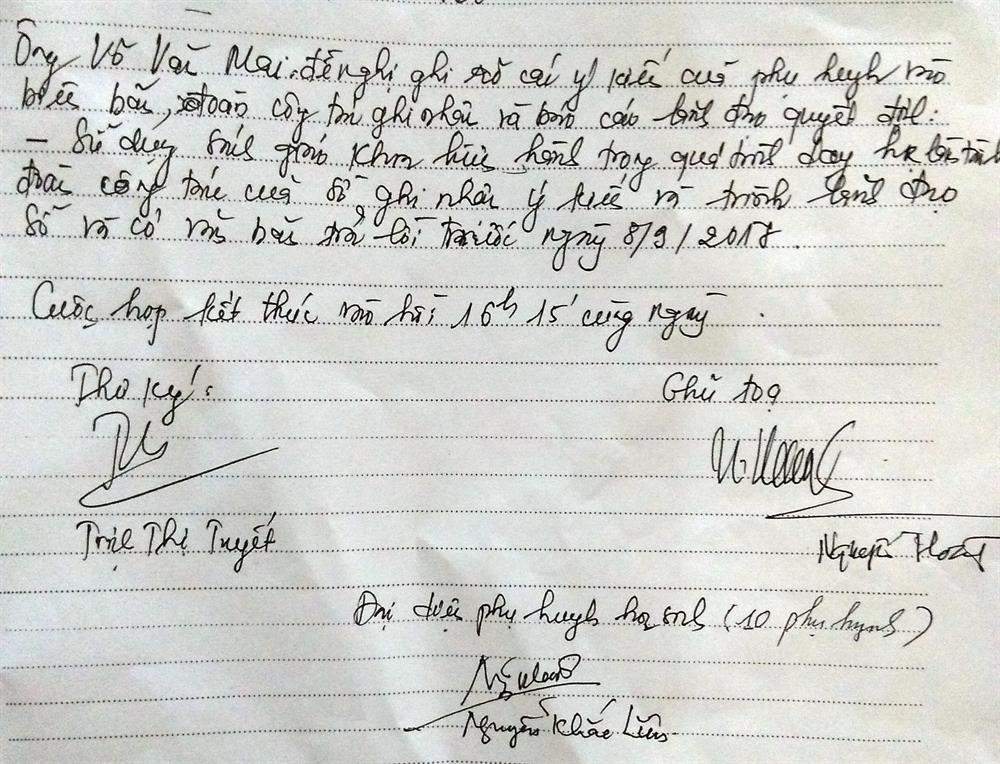 Ông Võ Văn Mai: đề nghị ghi rõ cái ý kiến của phụ huynh vào
biên bản, đoàn công tác ghi nhận và báo cáo lãnh đạo quyết định:
- Sử dụng sách giáo khoa hiện hành trong quá trình dạy học
đoàn công tác của Sở ghi nhận ý kiến và trình lãnh đạo
Sở và có văn bản trả lời trước ngày 8/9/2017.
Cuộc họp kết thúc vào hồi 16h 15' cùng ngày
Thư ký: Chủ toạ
Thị Tuyết Nguyễn
Đại diện phụ huynh học sinh (10 phụ huynh)
Nguyễn Khắc